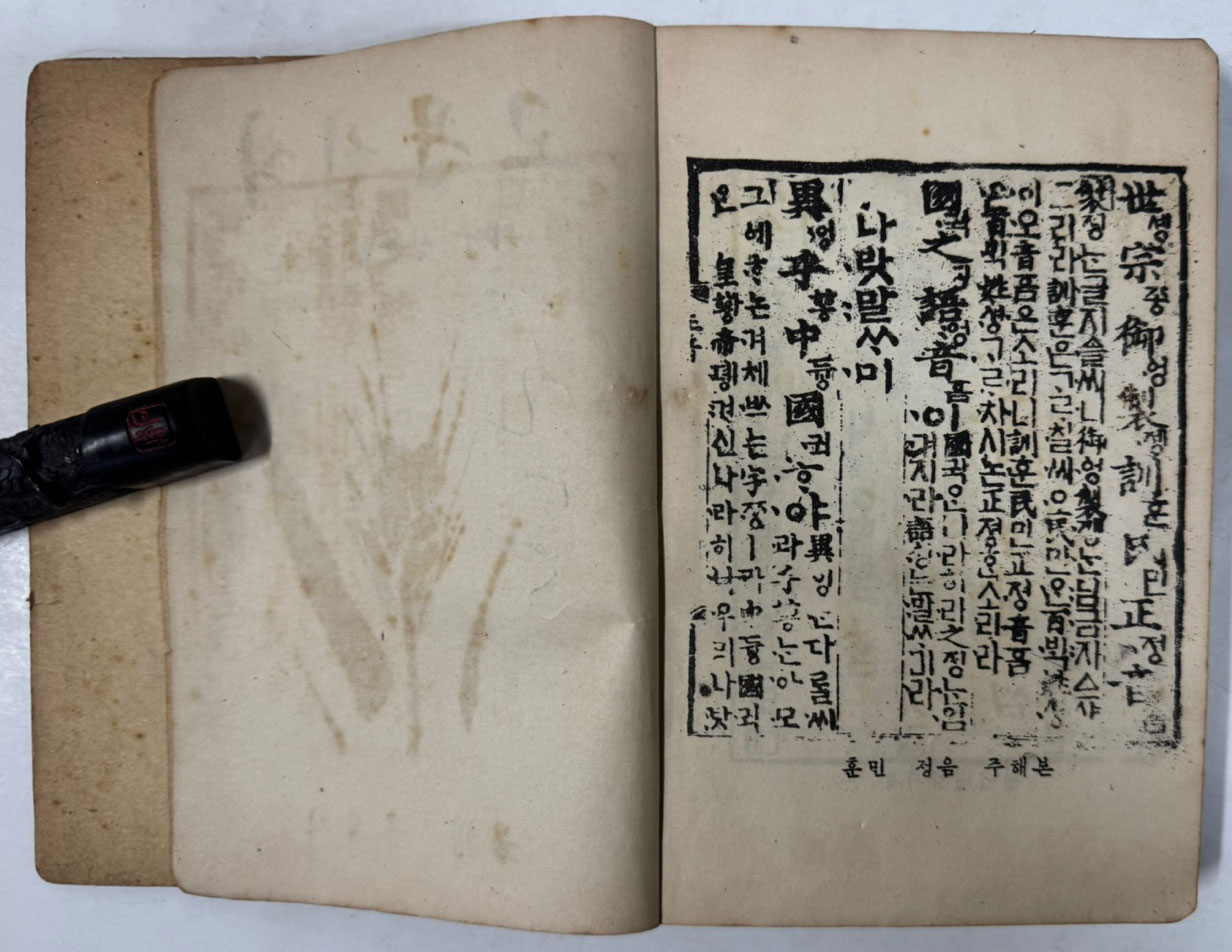 世솅宗종御엉製졩訓훈民민正정音
製졩는글지슬씨니御엉製졩는님금지스샨
그리라訓훈은ᄀᆞᄅᆞ칠씨오民민은百ᄇᆡᆨ姓셩
이오音흠은소리니訓훈民민正정音흠
은百ᄇᆡᆨ姓셩ᄀᆞᄅᆞ치시논正졍ᄒᆞᆫ소리라
國귁之징語엉音흠이國귁은나라히라之징는입
겨지라語엉는말ᄊᆞ미라
나랏말ᄊᆞ미
異잉乎ᅘᅩᆼ中듕國귁ᄒᆞ야異잉는다ᄅᆞᆯ씨
라乎ᅘᅩᆼ는아모
그에ᄒᆞ논겨체ᄡᅳ는字ᄍᆞᆼㅣ라中듕國귁
은皇황帝뎽겨신나라히니우리나랏
훈민 정음 주해본